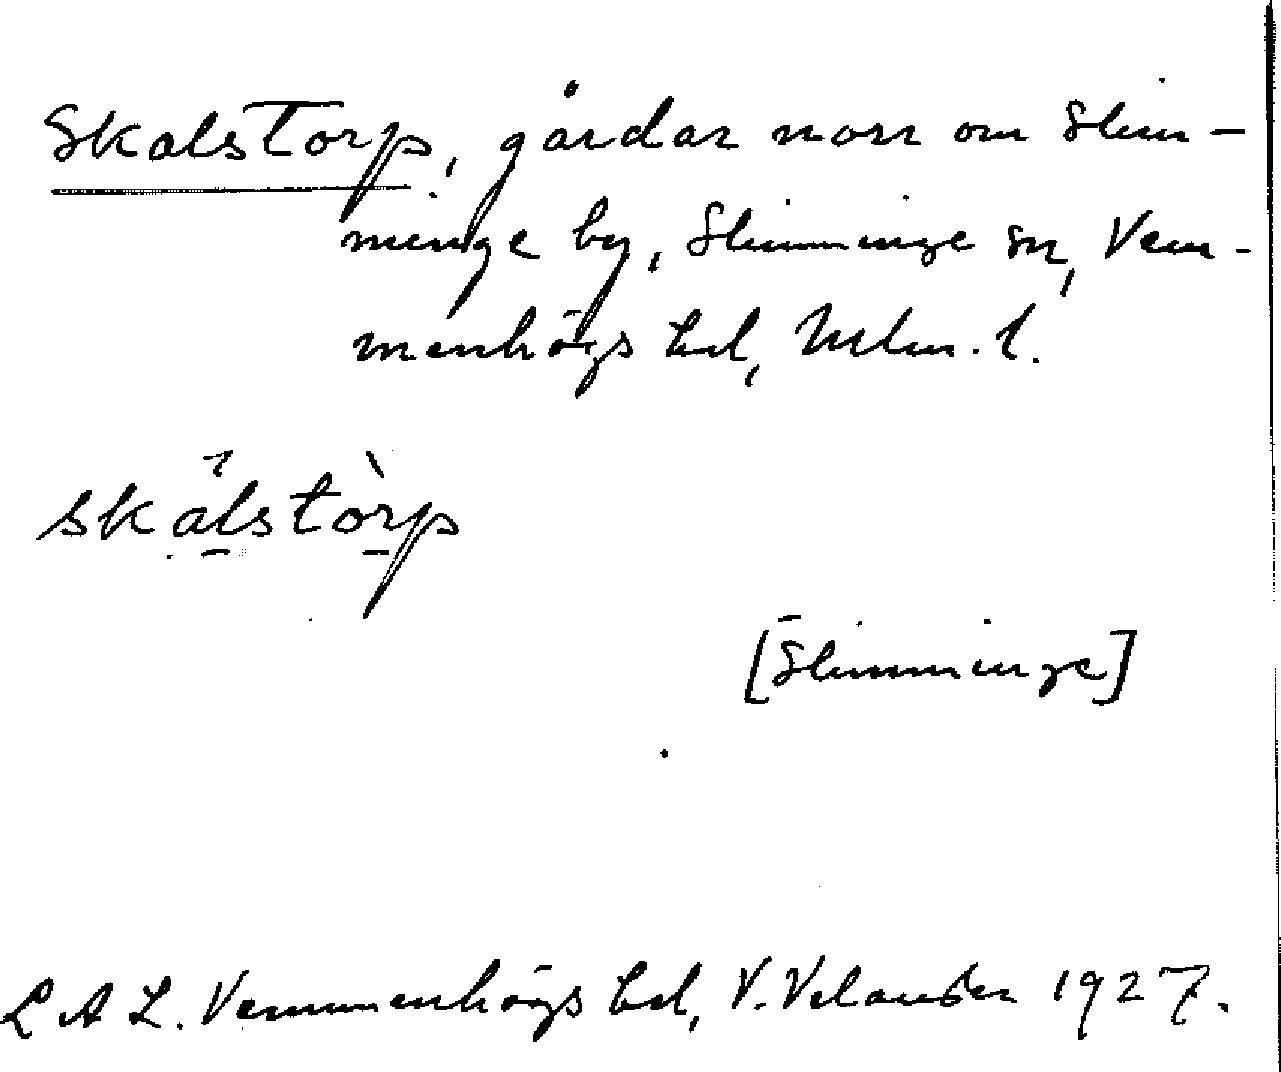 Skalstorp, gårdar norr om Slim-
minge by, Slimminge sn, Vem-
menhögs hd, Mlm. l.
skálstòrp
[Slimminge]
L A L. Vemmenhögs hd, V. Velander 1927.